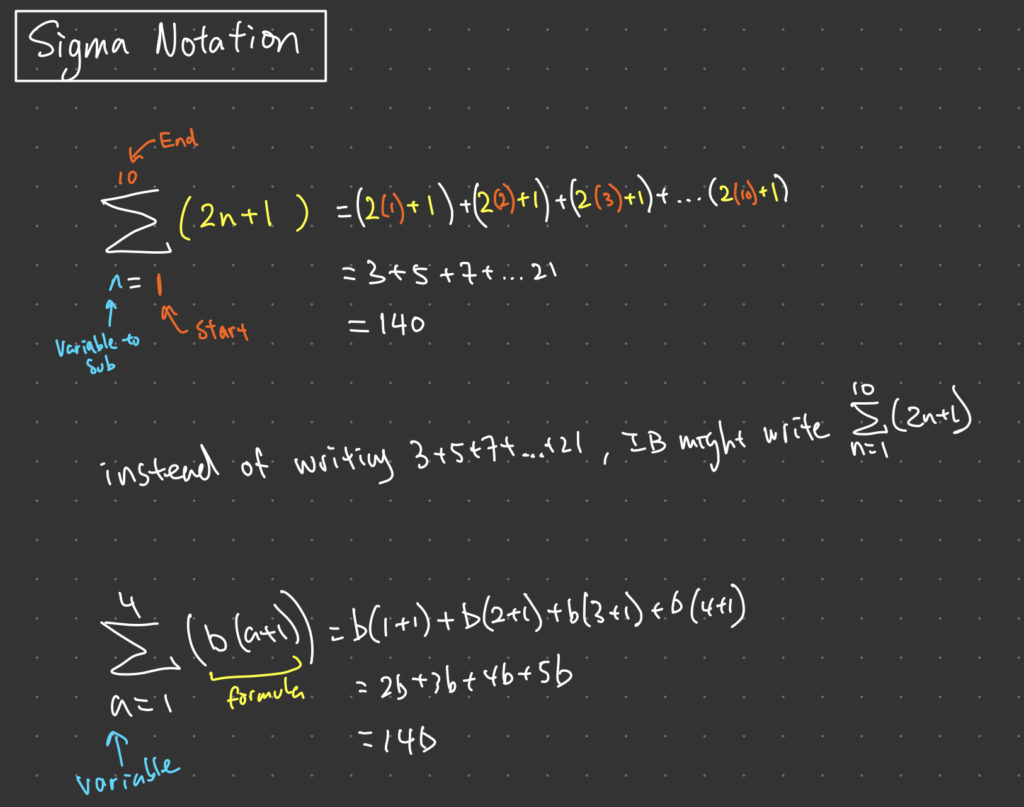 Sigma Notation
End
10
∑ (2n+1) = (2(1)+1)+(2(2)+1)+(2(3)+1)+...(2(10)+1)
n = 1
= 3+5+7+...21
Start
= 140
Variable to
Sub
10
instead of writing 3+5+7+...+21, IB might write ∑(2n+1)
n=1
4
∑ (b(a+1)) = b(1+1)+b(2+1)+b(3+1)+b(4+1)
a=1
formula
= 2b+3b+4b+5b
= 14b
variable